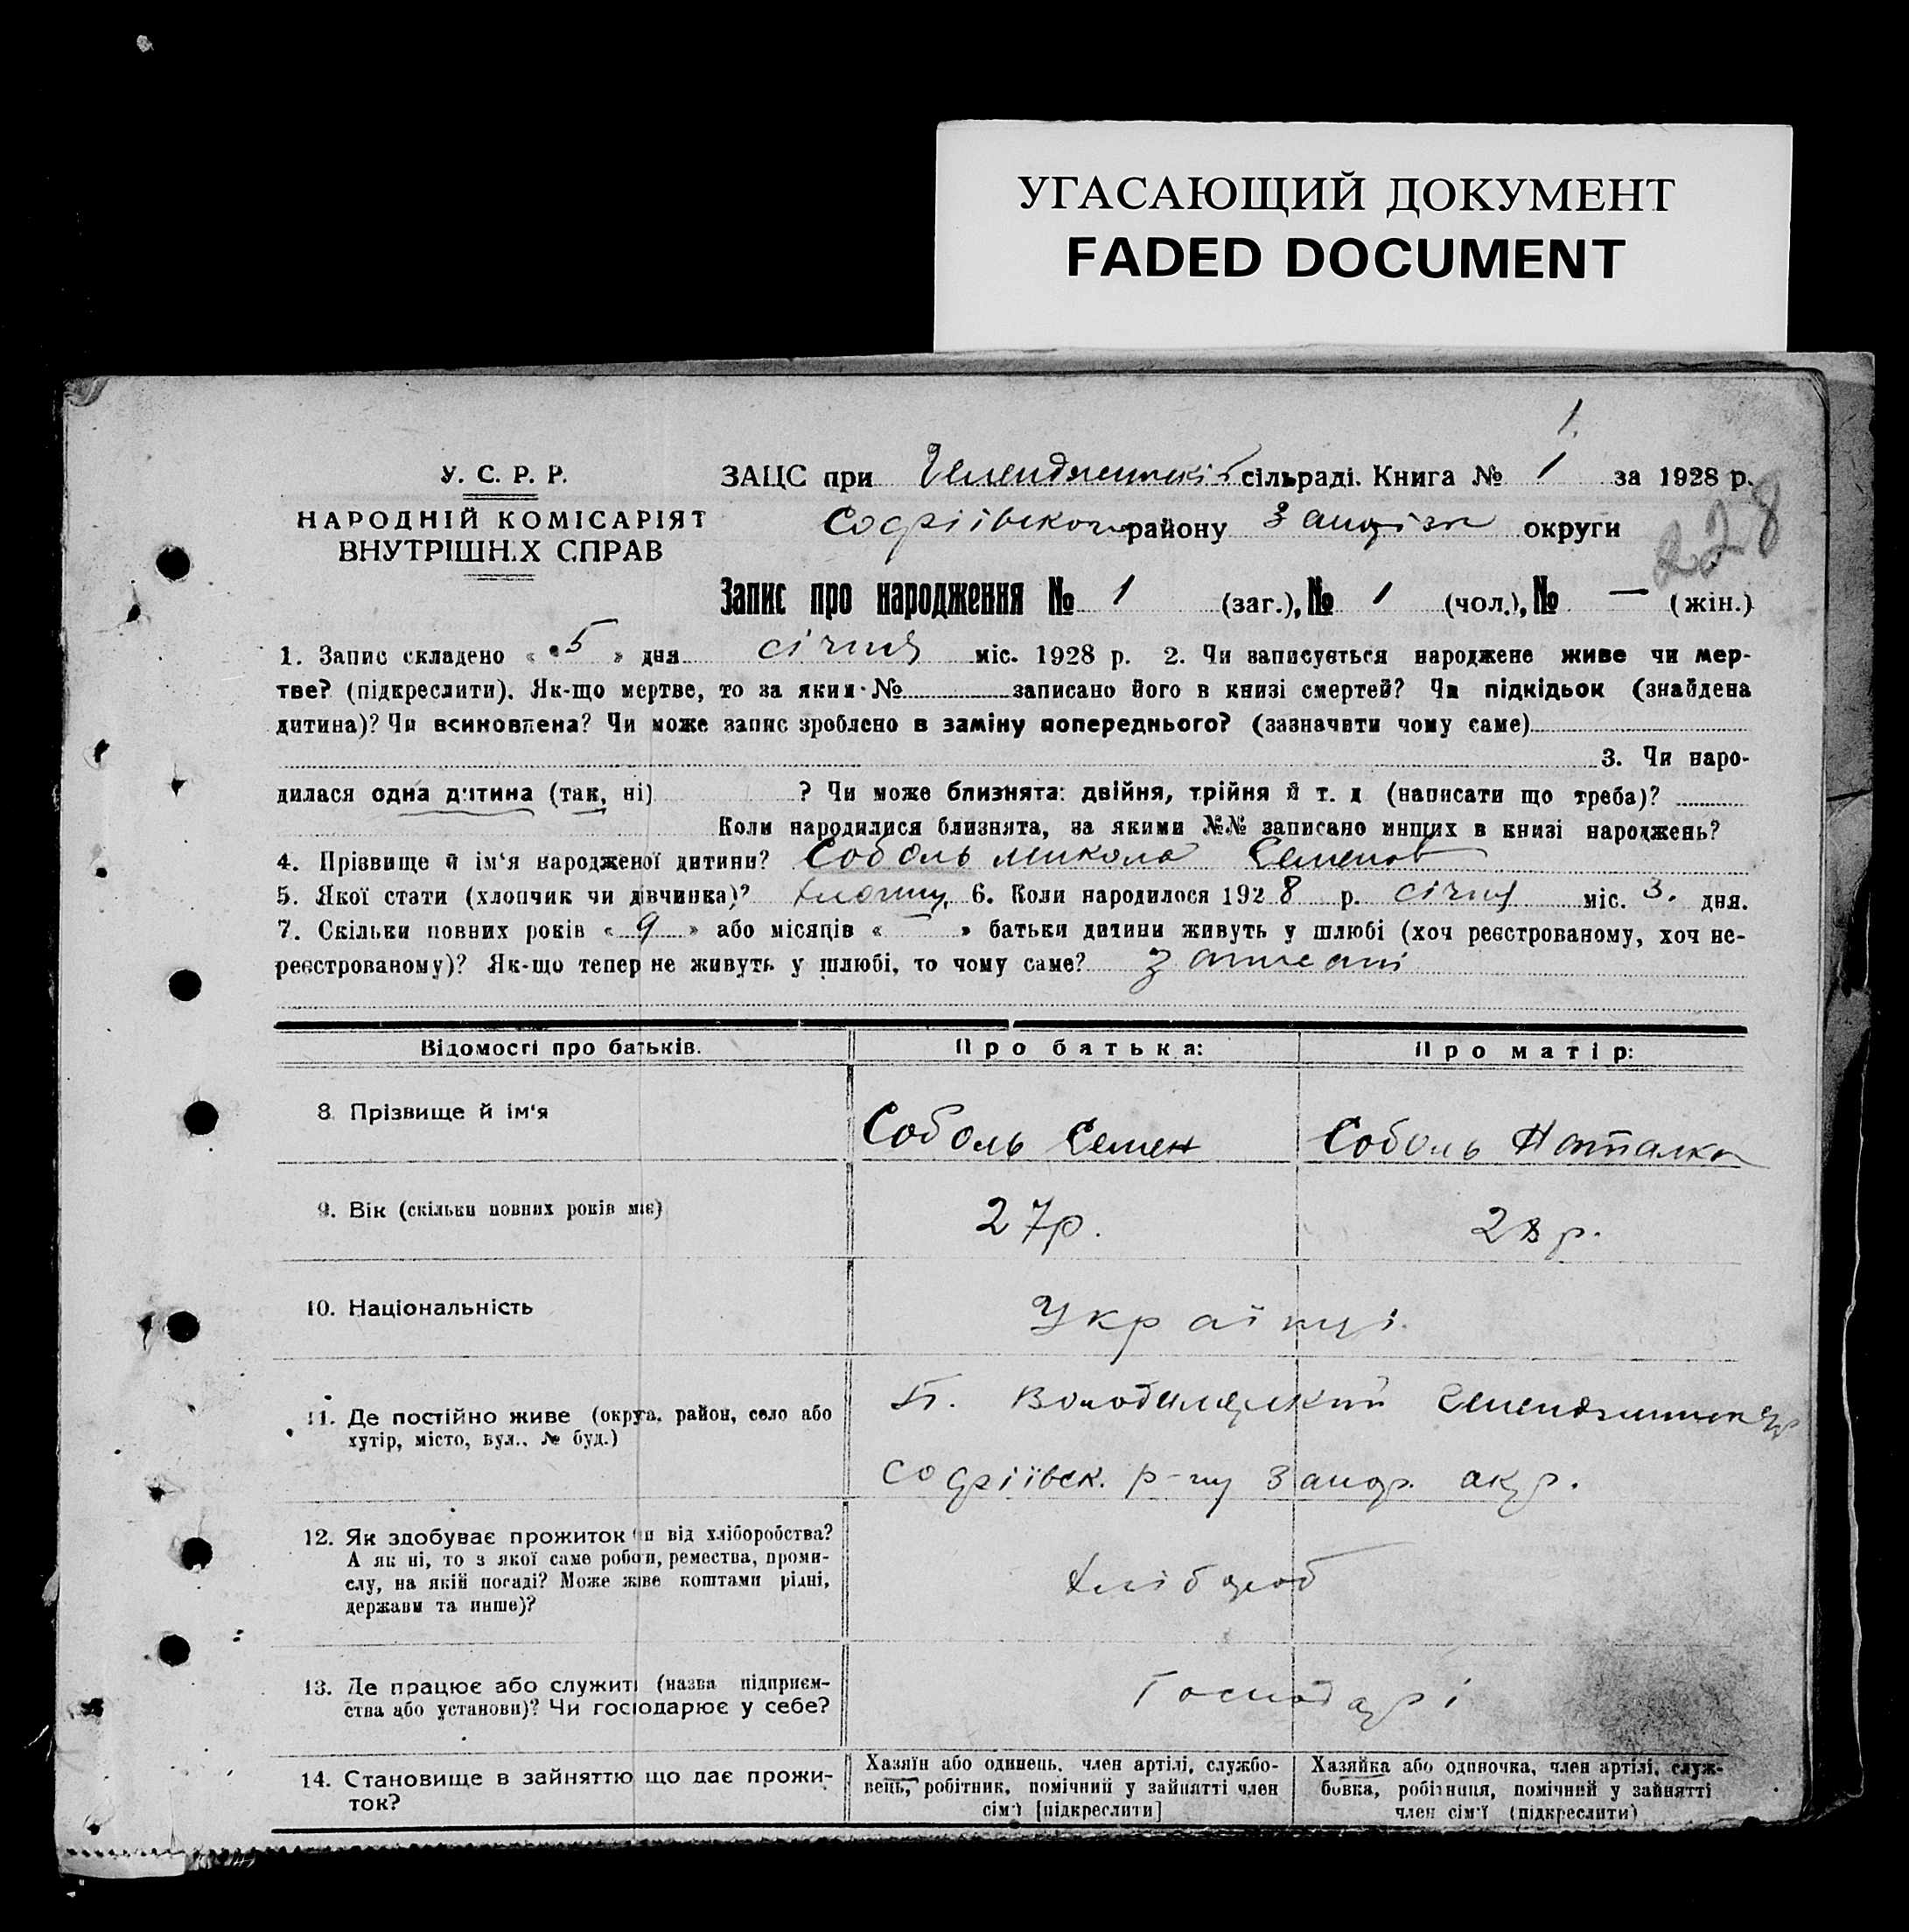 УГАСАЮЩИЙ ДОКУМЕНТ
FADED DOCUMENT
1.
У. С. Р. Р.
НАРОДНІЙ КОМІСАРІЯТ
ВНУТРІШНІХ СПРАВ
ЗАЦС при сільраді. Книга № 1 за 1928 р.
Софіївского району Запоріж округи
228
Запис про народження № 1 (заг.), № 1 (чол.), № — (жін.)
1. Запис складено « 5 » дня січня міс. 1928 р. 2. Чи записується народжене живе чи мер-
тве? (підкреслити). Як-що мертве, то за яким № записано його в книзі смертей? Чи підкідьок (знайдена
дитина)? Чи всиновлена? Чи може запис зроблено в заміну попереднього? (зазначити чому саме)
3. Чи наро-
дилася одна дитина (так, ні) ? Чи може близнята: двійня, трійня й т. д (написати що треба)?
Коли народилися близнята, за якими №№ записано инших в книзі народжень?
4. Прізвище й ім'я народженої дитини? Соболь Микола Семенов
5. Якої стати (хлопчик чи дівчинка)? хлопчик, 6. Коли народилося 1928 р. січня міс. 3. дня.
7. Скільки повних років « 9 » або місяців « — » батьки дитини живуть у шлюбі (хоч реєстрованому, хоч не-
реєстрованому)? Як-що тепер не живуть у шлюбі, то чому саме? записані
Відомості про батьків. Про батька: Про матір:
8. Прізвище й ім'я Соболь Семен Соболь Наталка
9. Вік (скільки повних років має) 27р. 28 р.
10. Національність Українці
11. Де постійно живе (округа, район, село або
хутір, місто, вул.. № буд.)
П. Володимирский
Софіївск. р-ну Запор. окр.
12. Як здобуває прожиток чи від хліборобства?
А як ні, то з якої саме роботи, ремества, проми-
слу, на якій посаді? Може живе коштами рідні,
держави та инше)?
Хлібороб
13. Де працює або служить (назва підприєм-
ства або установи)? Чи господарює у себе?
Господарі
14. Становище в зайняттю що дає прожи-
ток?
Хазяїн або одинець, член артілі, службо-
вець, робітник, помічний у зайнятті член
сім'ї [підкреслити]
Хазяйка або одиночка, член артілі, служ-
бовка, робітниця, помічний у зайнятті
член сім'ї (підкреслити)